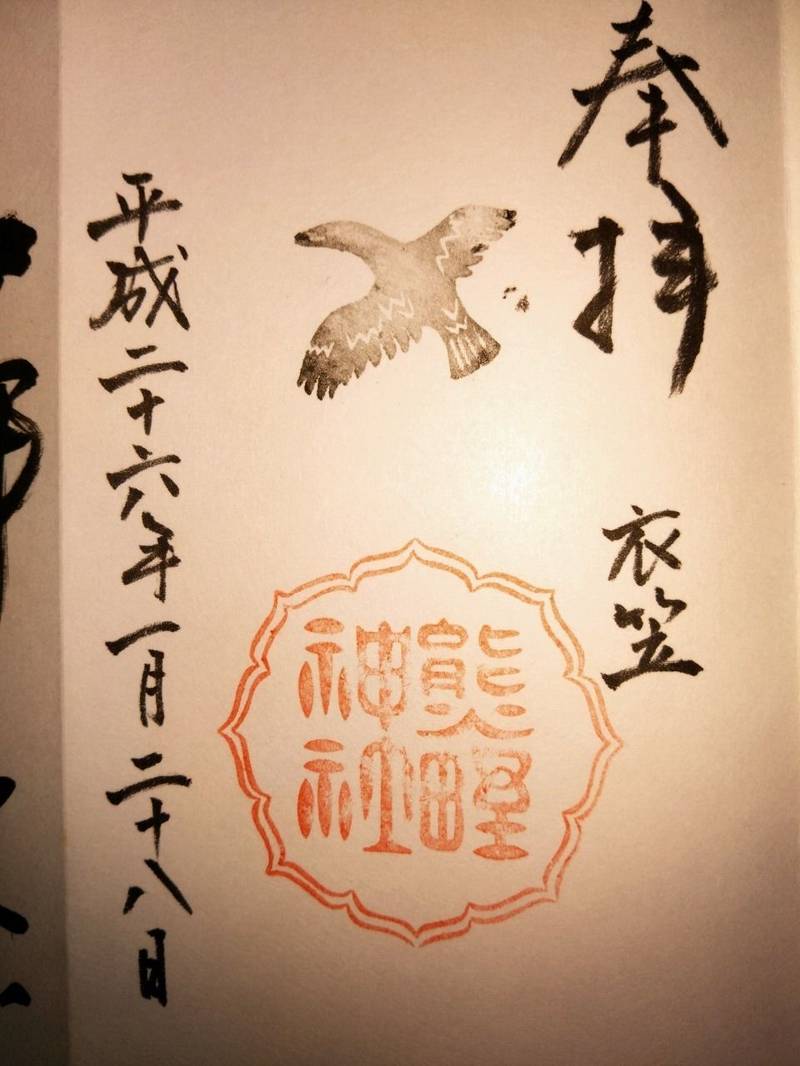 奉拝
衣笠
熊野
神社
平成二十六年一月二十八日